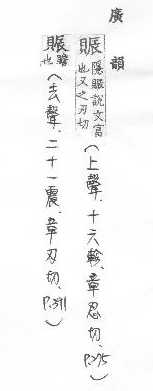 廣韻
賑 隱賑說文富也又之刃切（上聲、十六軫、章忍切、P.275）
賑 贍也（去聲、二十一震、章刃切、P.391）